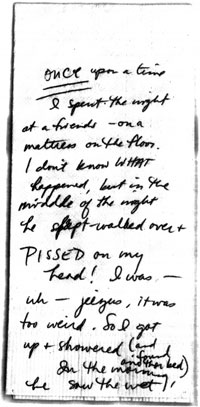 ONCE upon a time
I spent the night
at a friends - on a
mattress on the floor.
I don't know WHAT
happened, but in the
middle of the night
he slept-walked over +
PISSED on my
head! I was —
uh — jeezus, it was
too weird. So I got
up + showered (and
found
another bed)
In the morning
he saw the wet